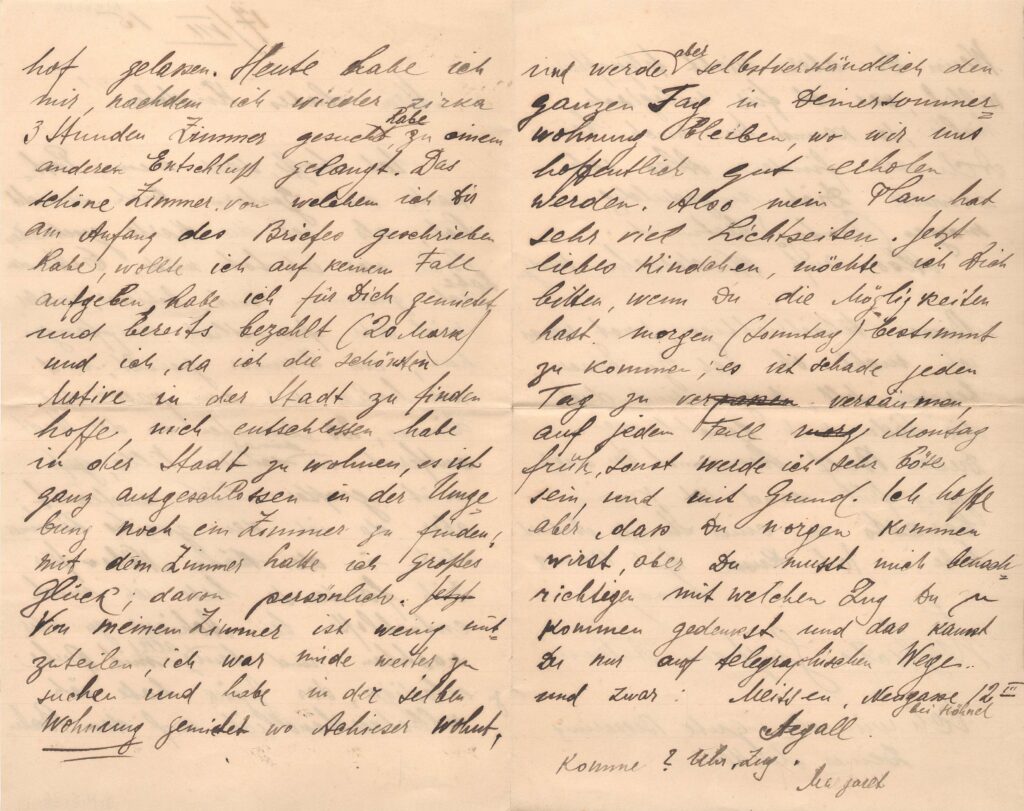 hof gelassen. Heute habe ich
mir, nachdem ich wieder zirka
3 Stunden Zimmer gesucht habe, zu einem
anderen Entschluß gelangt. Das
schöne Zimmer, von welchem ich Dir
am Anfang des Briefes geschrieben
habe, wollte ich auf keinem Fall
aufgeben, habe ich für Dich gemietet
und bereits bezahlt (20 Mark)
und ich, da ich die schönsten
Motive in der Stadt zu finden
hoffe, mich entschlossen habe
in der Stadt zu wohnen, es ist
ganz ausgeschlossen in der Umge
bung noch ein Zimmer zu finden,
mit dem Zimmer hatte ich großes
Glück; davon persönlich. Jetzt
Von meinem Zimmer ist wenig mit-
zuteilen, ich war müde weiter zu
suchen, und habe in der selben
Wohnung gemietet wo Achieser wohnt,
und werde aber selbstverständlich den
ganzen Tag in Deiner Sommer=
wohnung bleiben, wo wir uns
hoffentlich gut erholen
werden. Also mein Plan hat
sehr viel Lichtseiten. Jetzt
liebes Kindchen, möchte ich Dich
bitten, wenn Du die Mögligkeiten
hast morgen (Sonntag) bestimmt
zu kommen; es ist schade jeden
Tag zu verpassen versäumen,
auf jeden Fall morg Montag
früh, sonst werde ich sehr böse
sein, und mit Grund. Ich hoffe
aber, dass Du morgen kommen
wirst, aber Du musst mich benach-
richtigen mit welchen Zug Du zu
kommen gedenkst und das kannst
Du nur auf telegraphischen Wege.
und zwar: Meissen, Neugasse 12 III
bei Höhnel
Segall.
Komme ? Uhr, Zug.
Margarete